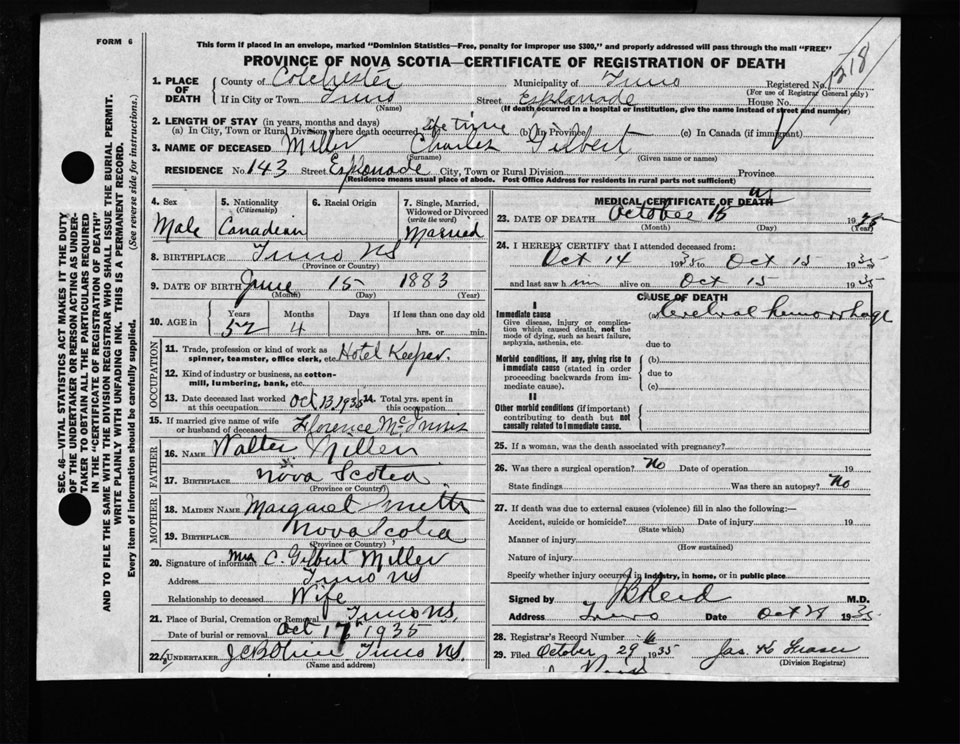 FORM 6
This form if placed in an envelope, marked "Dominion Statistics—Free, penalty for improper use $300," and properly addressed will pass through the mail "FREE"
PROVINCE OF NOVA SCOTIA—CERTIFICATE OF REGISTRATION OF DEATH
1218
1. PLACE OF DEATH
County of Colchester Municipality of Truro Registered No.
(For use of Registrar General only)
If in City or Town Truro Street Esplanade House No.
(Name) (If death occurred in a hospital or institution, give the name instead of street and number)
2. LENGTH OF STAY (in years, months and days)
(a) In City, Town or Rural Division where death occurred life time (b) In Province (c) In Canada (if immigrant)
3. NAME OF DECEASED Miller Charles Gilbert
(Surname) (Given name or names)
RESIDENCE No. 143 Street Esplanade City, Town or Rural Division Province
(Residence means usual place of abode. Post Office Address for residents in rural parts not sufficient)
4. Sex Male
5. Nationality (Citizenship) Canadian
6. Racial Origin
7. Single, Married, Widowed or Divorced (write the word) Married
8. BIRTHPLACE Truro NS
(Province or Country)
9. DATE OF BIRTH June 15 1883
(Month) (Day) (Year)
10. AGE in Years Months Days If less than one day old
52 4 hrs. or min.
OCCUPATION
11. Trade, profession or kind of work as spinner, teamster, office clerk, etc. Hotel Keeper.
12. Kind of industry or business, as cotton-mill, lumbering, bank, etc.
13. Date deceased last worked at this occupation Oct 13 1935 14. Total yrs. spent in this occupation
15. If married give name of wife or husband of deceased Florence McInnis
FATHER
16. NAME Walter Miller
17. BIRTHPLACE Nova Scotia
(Province or Country)
MOTHER
18. MAIDEN NAME Margaret
19. BIRTHPLACE Nova Scotia
(Province or Country)
20. Signature of informant Mrs C. Gilbert Miller
Address Truro NS
Relationship to deceased Wife
21. Place of Burial, Cremation or Removal Truro NS.
Date of burial or removal Oct 17 1935
22. UNDERTAKER Truro NS.
(Name and address)
MEDICAL CERTIFICATE OF DEATH
23. DATE OF DEATH October 15 1935
(Month) (Day) (Year)
24. I HEREBY CERTIFY that I attended deceased from:
Oct 14 1935 to Oct 15 1935
and last saw him alive on Oct 15 1935
CAUSE OF DEATH
I
Immediate cause
Give disease, injury or complication which caused death, not the mode of dying, such as heart failure, asphyxia, asthenia, etc.
(a) Cerebral hemorrhage
due to
Morbid conditions, if any, giving rise to immediate cause (stated in order proceeding backwards from immediate cause).
(b)
due to
(c)
II
Other morbid conditions (if important) contributing to death but not causally related to immediate cause.
25. If a woman, was the death associated with pregnancy?
26. Was there a surgical operation? No Date of operation 19
State findings Was there an autopsy? No
27. If death was due to external causes (violence) fill in also the following:—
Accident, suicide or homicide? Date of injury 19
(State which)
Manner of injury
(How sustained)
Nature of injury
Specify whether injury occurred in industry, in home, or in public place
Signed by M.D.
Address Truro Date 1935
28. Registrar's Record Number
29. Filed October 29 1935 Jas. K Fraser
(Division Registrar)
SEC. 46—VITAL STATISTICS ACT MAKES IT THE DUTY
OF THE UNDERTAKER OR PERSON ACTING AS UNDER-
TAKER TO OBTAIN ALL THE PARTICULARS REQUIRED
IN THE "CERTIFICATE OF REGISTRATION OF DEATH"
AND TO FILE THE SAME WITH THE DIVISION REGISTRAR WHO SHALL ISSUE THE BURIAL PERMIT.
WRITE PLAINLY WITH UNFADING INK. THIS IS A PERMANENT RECORD.
Every item of information should be carefully supplied. (See reverse side for instructions.)